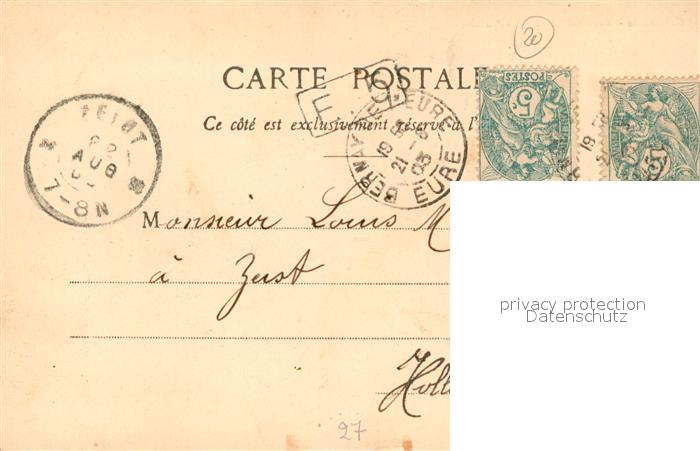 20
CARTE POSTALE
Ce côté est exclusivement réservé à l'
POSTES
5c
E
BERNAY
EURE
19
21
03
EURE
ZEIST
22
AUG
7-8N
Monsieur Louis M
à Zeist
privacy protection
Datenschutz
Holl
27